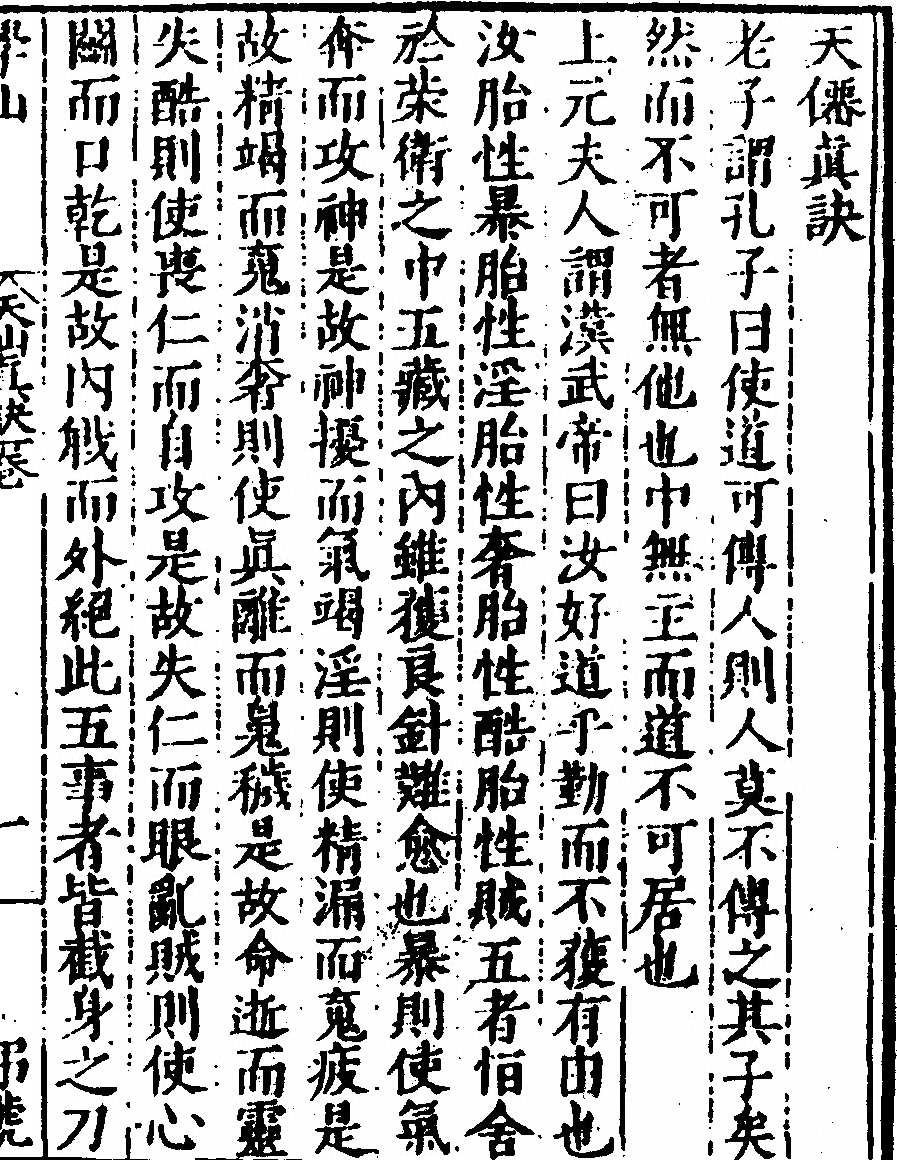 天僊眞訣
老子謂孔子曰使道可傳人則人莫不傳之其子矣
然而不可者無他也中無主而道不可居也
上元夫人謂漢武帝曰汝好道乎勤而不獲有由也
汝胎性暴胎性淫胎性奢胎性酷胎性賊五者恒舍
於榮衛之中五藏之內雖獲良針難愈也暴則使氣
奔而攻神是故神擾而氣竭淫則使精漏而䰟疲是
故精竭而䰟消奢則使眞離而䰟穢是故命逝而靈
失酷則使喪仁而自攻是故失仁而眼亂賊則使心
鬭而口乾是故內戰而外絕此五事者皆截身之刀